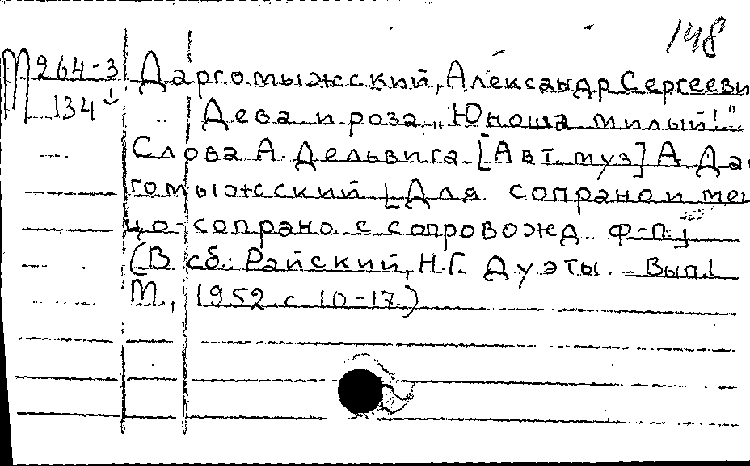 148
М 264-3 Даргомыжский, Александр Сергееви
134 Дева и роза „Юноша милый!"
Слова А. Дельвига. [Авт. муз] А. Дар
гомыжский [Для сопрано и мец
цо-сопрано с сопровожд. ф-п.]
(В сб.: Райский, Н.Г. Дуэты. Вып. 1
М., 1952 с. 10-17.)